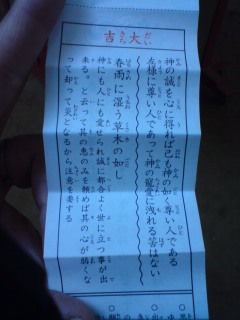 大吉
神の誠を心に得れば己も神の如く尊い人である
左様に尊い人であって神の寵愛に洩れる筈はない
春雨に湿う草木の如し
神にも人にも愛せられ誠に都合よく世に立つ事が出
来る。と云って其の恵のみを頼めば其の心が弱くな
って却って災となるから注意を要する